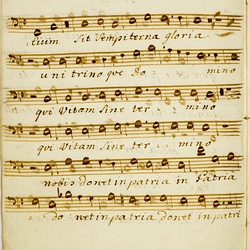 tium sit sempiterna gloria
uni trino que do mino
qui Vitam sine ter mino
qui Vitam sine ter mino
nobis donet in patria in Patria
do net in patria donet in patri